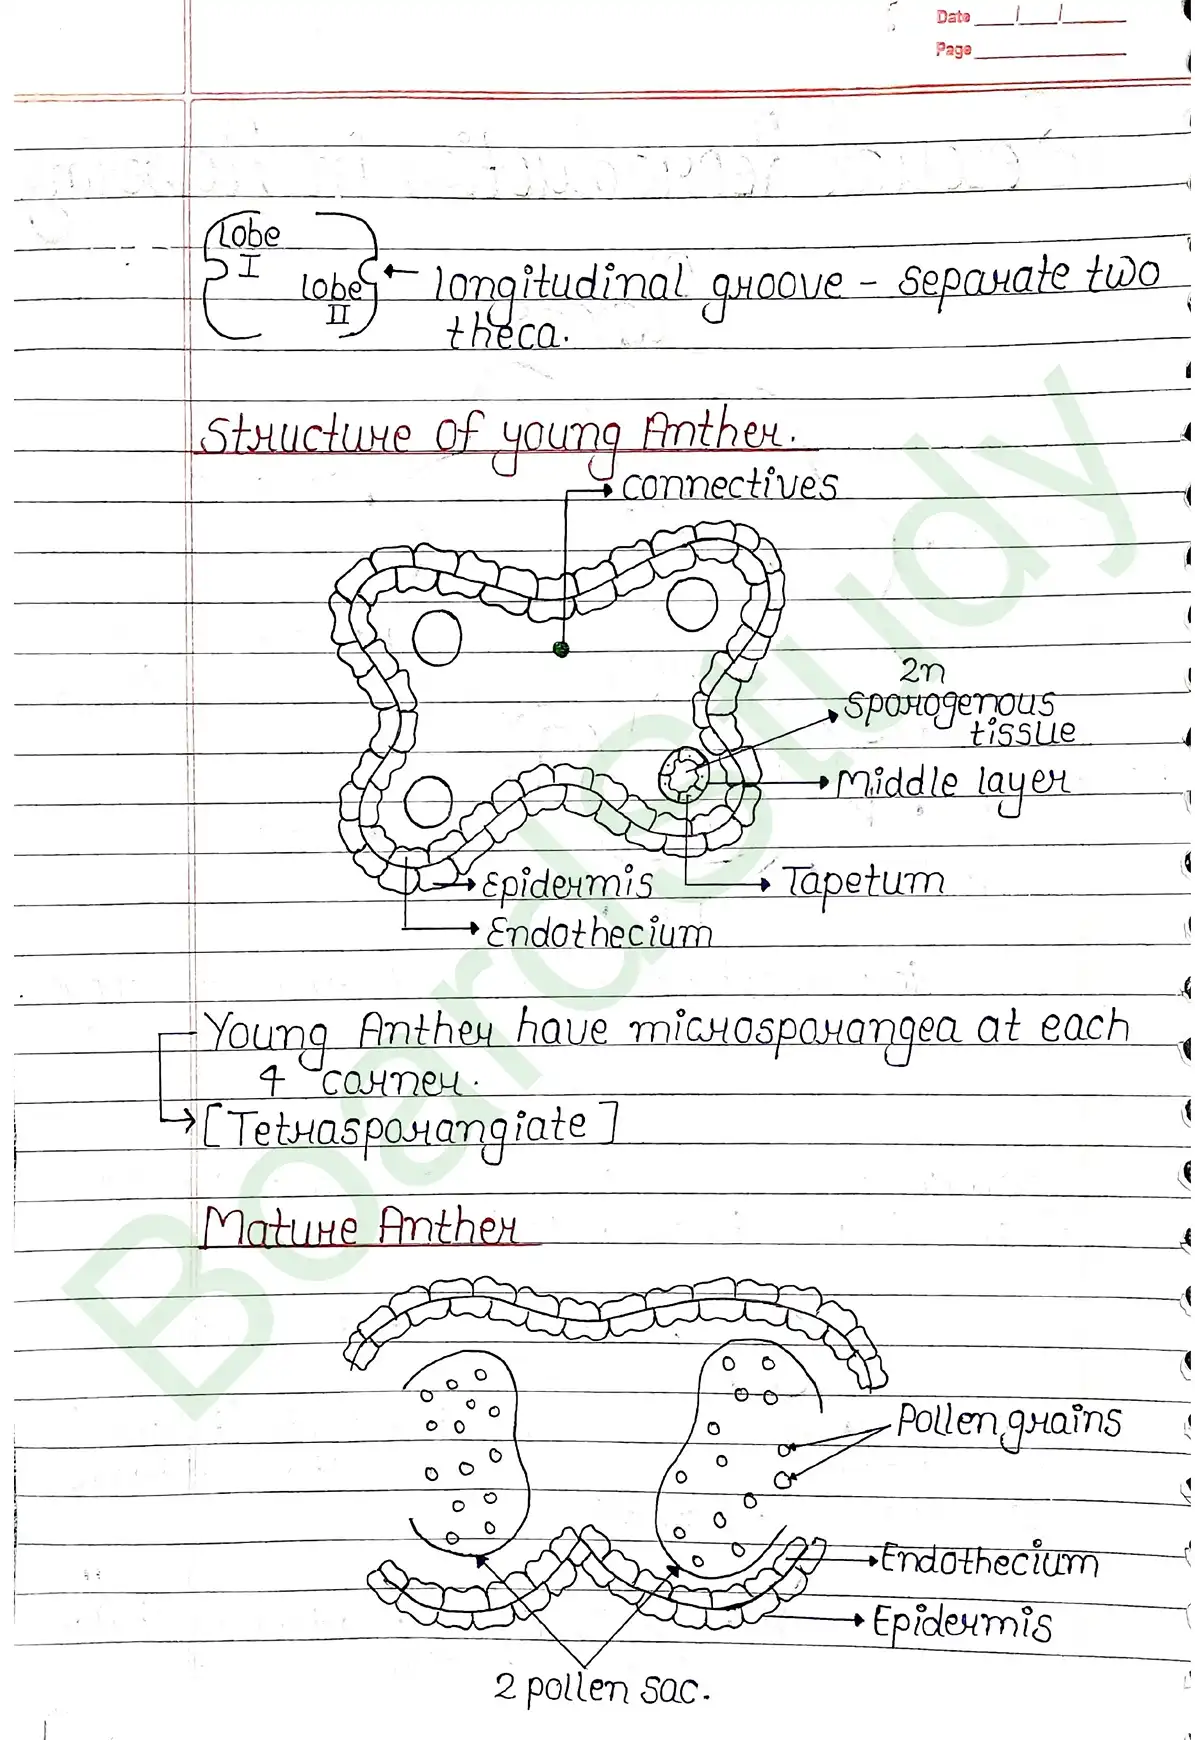 Date
Page
Lobe
I
Lobe
II
longitudinal groove - separate two
theca.
Structure of young Anther.
connectives
2n
sporogenous
tissue
Middle layer
Epidermis
Tapetum
Endothecium
Young Anther have microsporangea at each
4 corner.
[Tetrasporangiate]
Mature Anther
Pollen grains
Endothecium
Epidermis
2 pollen sac.
Boardstudy